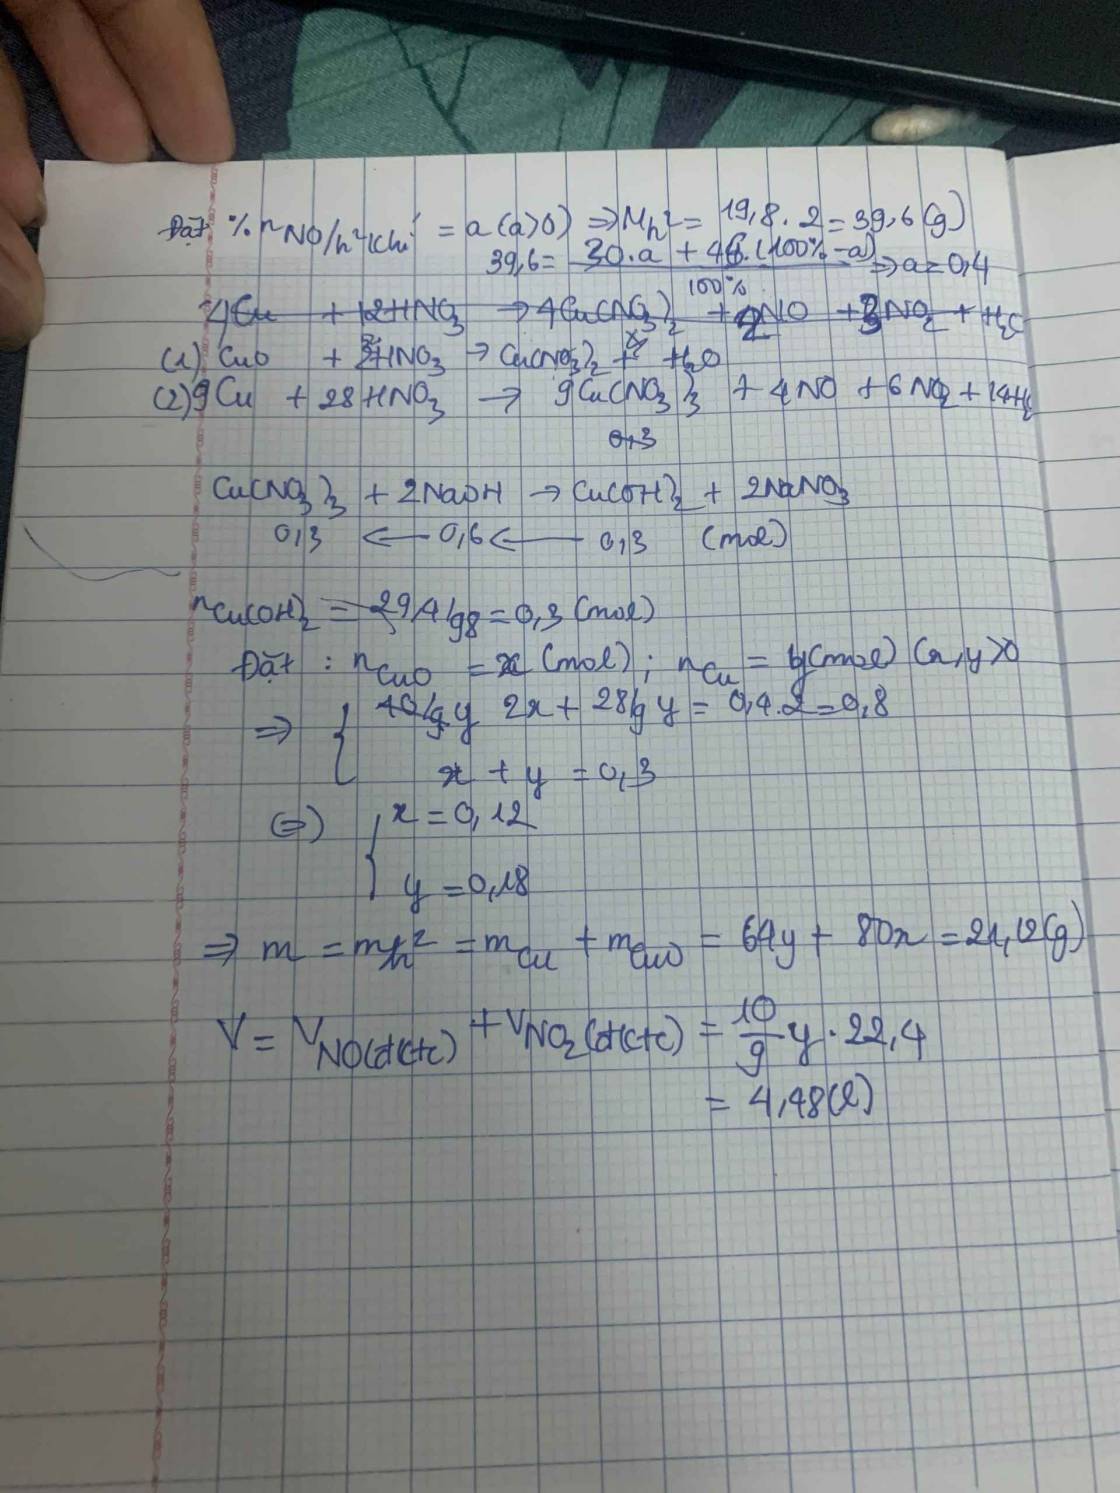 Đặt % nNO/h² khí = a (a>0) => Mh² = 19,8.2 = 39,6 (g)
39,6 = 30.a + 46.(100% - a) / 100% => a = 0,4
4Cu + 12HNO3 → 4Cu(NO3)2 + 2NO + 3NO2 + H2O
(1) CuO + 2HNO3 → Cu(NO3)2 + H2O
(2) 9Cu + 28HNO3 → 9Cu(NO3)2 + 4NO + 6NO2 + 14H2
0,3
Cu(NO3)2 + 2NaOH → Cu(OH)2 + 2NaNO3
0,3 ← 0,6 ← 0,3 (mol)
nCu(OH)2 = 29,4/98 = 0,3 (mol)
Đặt : nCuO = x (mol) ; nCu = y (mol) (x,y>0)
=> { 2x + 28/9 y = 0,4.2 = 0,8
x + y = 0,3
(=>) { x = 0,12
y = 0,18
=> m = mh² = mCu + mCuO = 64y + 80x = 21,12 (g)
V = VNO(đktc) + VNO2(đktc) = 10/9 y . 22,4
= 4,48 (l)